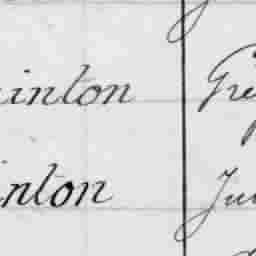 inton Gre
inton Ju